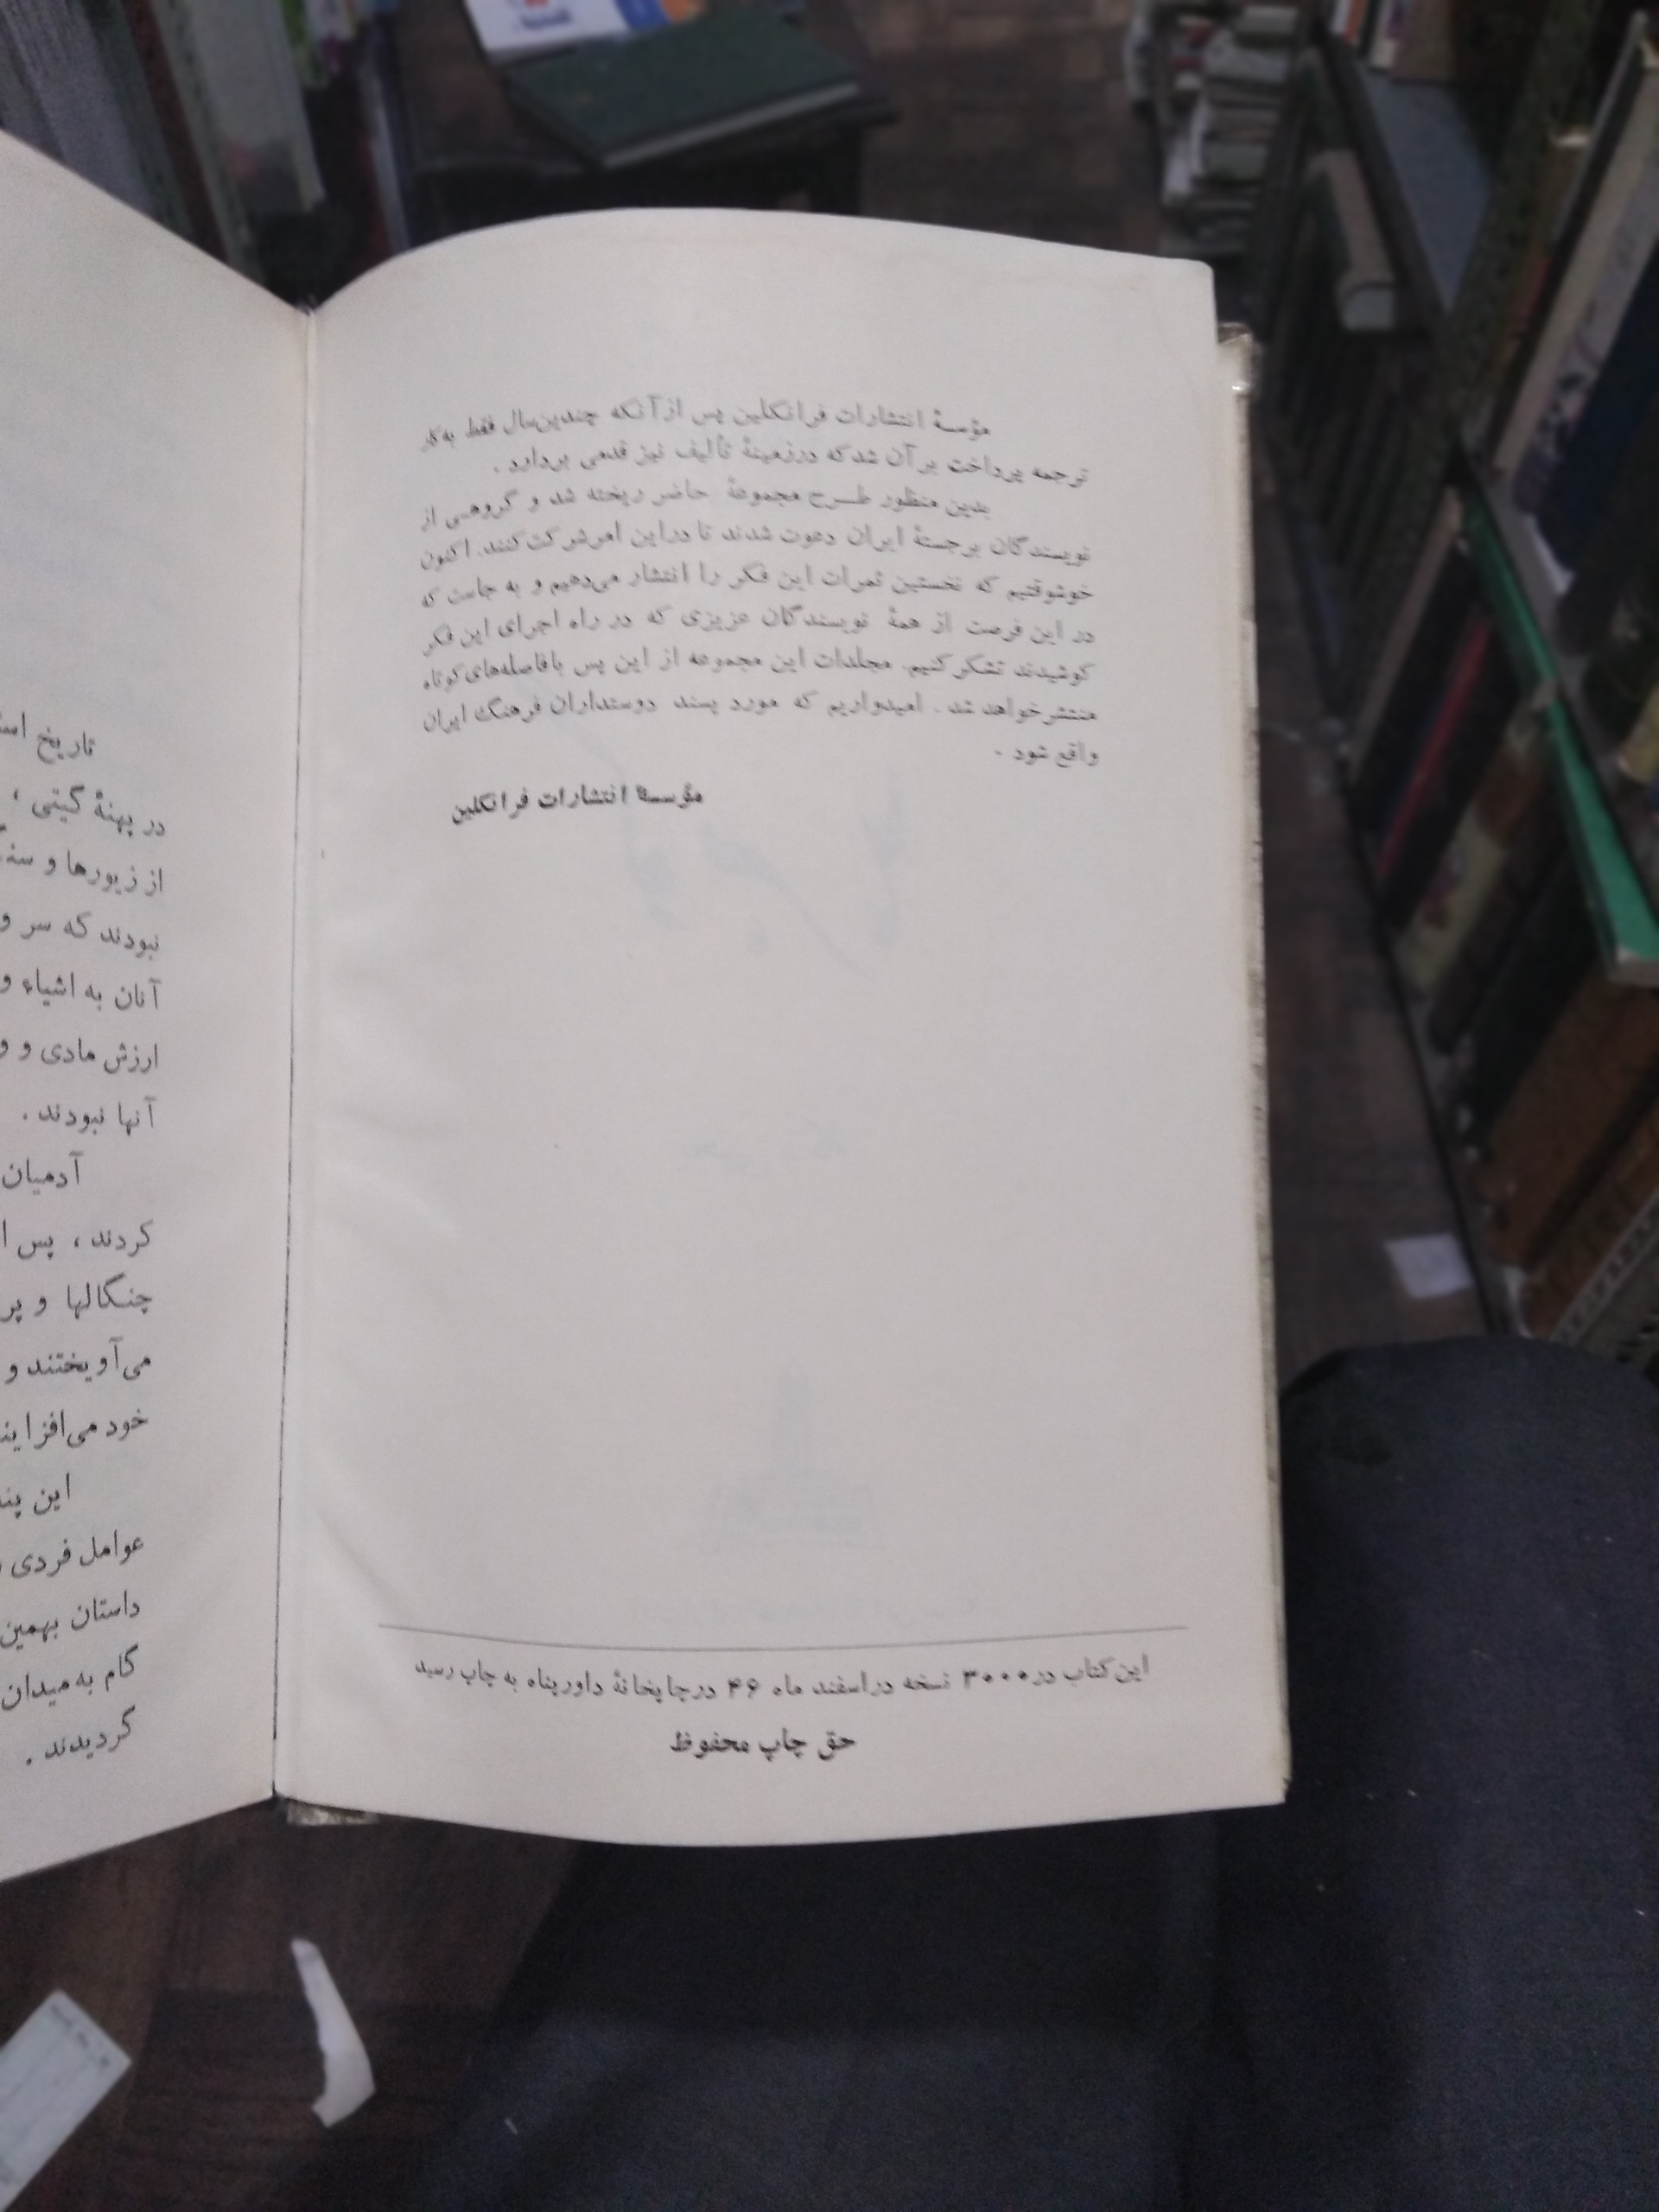 مؤسسهٔ انتشارات فرانکلین پس از آنکه چندین‌سال فقط به‌کار
ترجمه پرداخت بر آن شد که در زمینهٔ تألیف نیز قدمی بردارد .
بدین منظور طرح مجموعهٔ حاضر ریخته شد و گروهی از
نویسندگان برجستهٔ ایران دعوت شدند تا در این امر شرکت کنند. اکنون
خوشوقتیم که نخستین ثمرات این فکر را انتشار می‌دهیم و به جاست که
در این فرصت از همهٔ نویسندگان عزیزی که در راه اجرای این فکر
کوشیدند تشکر کنیم. مجلدات این مجموعه از این پس با فاصله‌های کوتاه
منتشر خواهد شد . امیدواریم که مورد پسند دوستداران فرهنگ ایران
واقع شود .
مؤسسهٔ انتشارات فرانکلین
این کتاب در ۳۰۰۰ نسخه در اسفند ماه ۴۶ در چاپخانهٔ داورپناه به چاپ رسید
حق چاپ محفوظ
تاریخ
در پهنهٔ گیتی ،
از زیورها و
نبودند که سر و
آنان به اشیاء و
ارزش مادی و
آنها نبودند .
آدمیان
کردند ، پس
چنگالها و
می‌آویختند و
خود
این
عوامل فردی
داستان بهمین
گام به میدان
گردیدند .